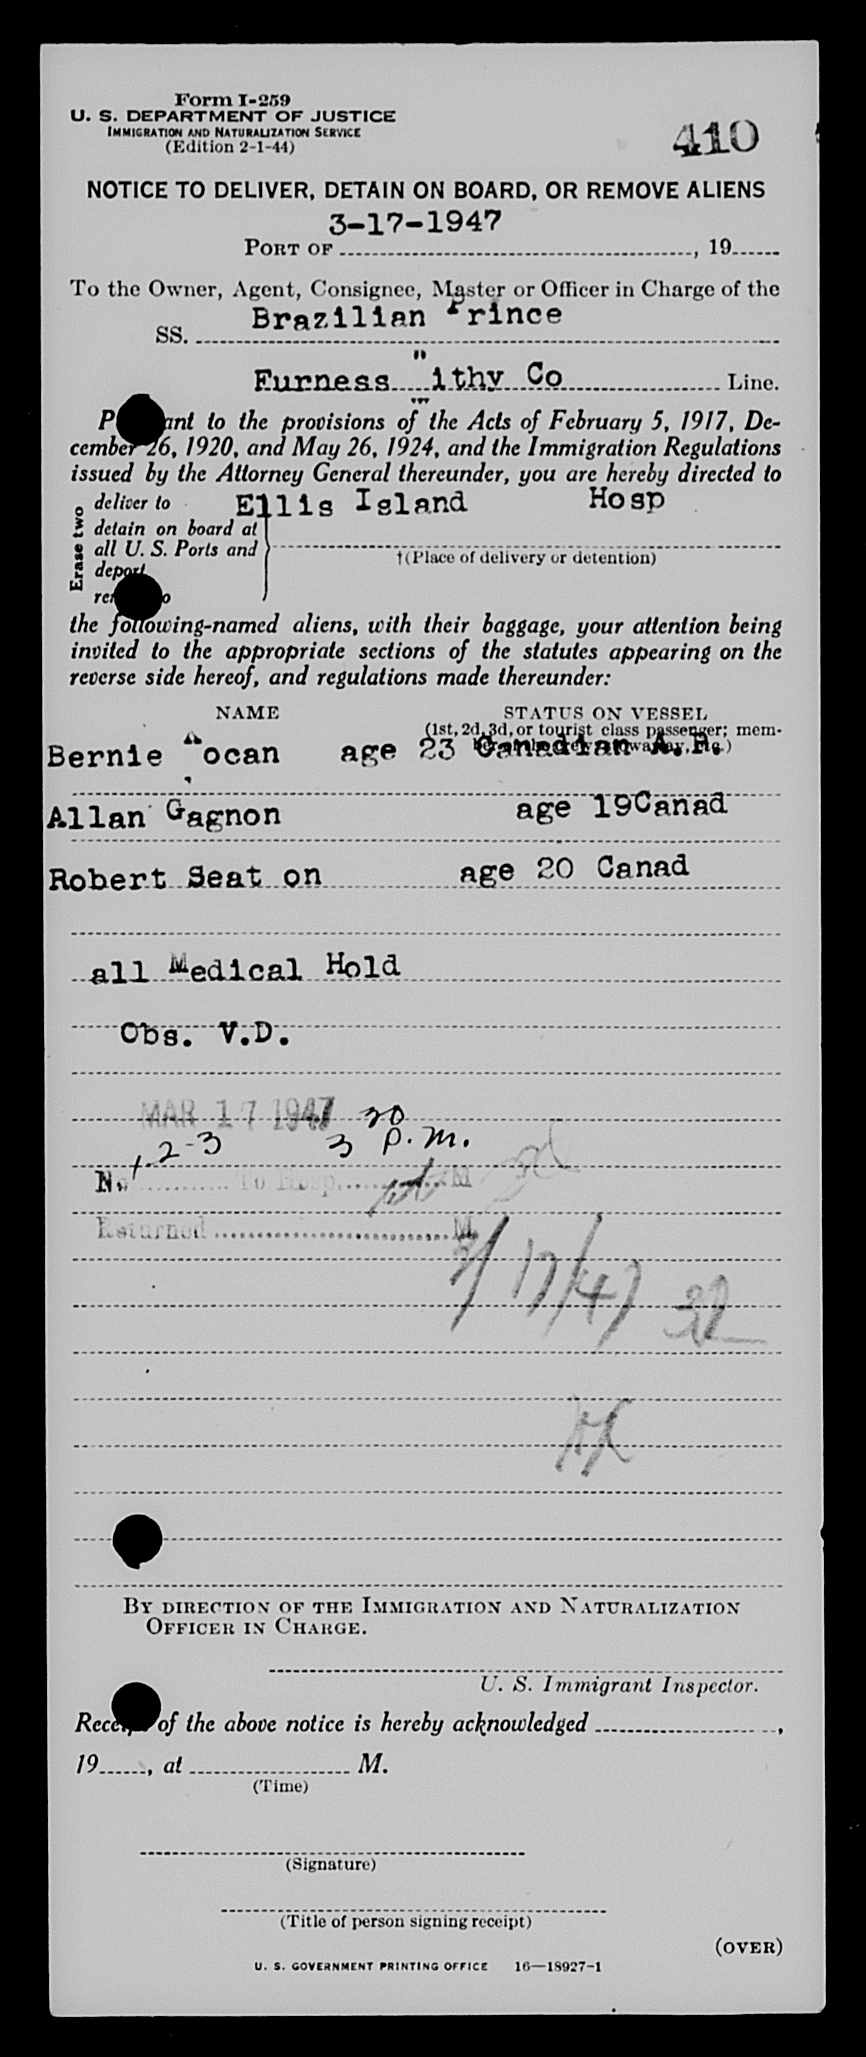 Form I-259
U. S. DEPARTMENT OF JUSTICE
IMMIGRATION AND NATURALIZATION SERVICE
(Edition 2-1-44)
410
NOTICE TO DELIVER, DETAIN ON BOARD, OR REMOVE ALIENS
3-17-1947
PORT OF , 19
To the Owner, Agent, Consignee, Master or Officer in Charge of the
SS. Brazilian Prince
Furness Withy Co Line.
P ant to the provisions of the Acts of February 5, 1917, De-
cember 26, 1920, and May 26, 1924, and the Immigration Regulations
issued by the Attorney General thereunder, you are hereby directed to
Erase two
deliver to Ellis Island Hosp
detain on board at
all U. S. Ports and
†(Place of delivery or detention)
deport
the following-named aliens, with their baggage, your attention being
invited to the appropriate sections of the statutes appearing on the
reverse side hereof, and regulations made thereunder:
NAME STATUS ON VESSEL
(1st, 2d, 3d, or tourist class passenger; mem-
Bernie age 23 Canadian
Allan Gagnon age 19Canad
Robert Seat on age 20 Canad
all Medical Hold
Obs. V.D.
MAR 17 1947
1-2-3 3 20 P.M.
No. To Hosp. M
Returned M.
3/17/47
BY DIRECTION OF THE IMMIGRATION AND NATURALIZATION
OFFICER IN CHARGE.
U. S. Immigrant Inspector.
Receipt of the above notice is hereby acknowledged ,
19 , at M.
(Time)
(Signature)
(Title of person signing receipt)
(OVER)
U. S. GOVERNMENT PRINTING OFFICE 16—18927-1